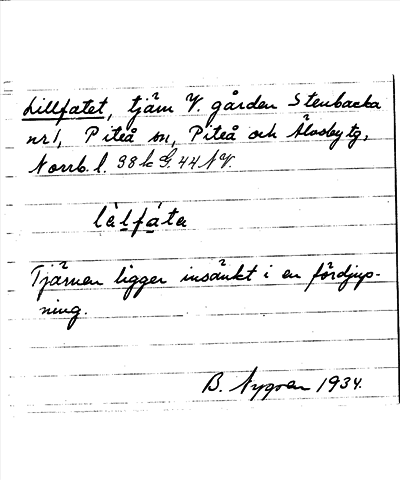 Lillfatet, tjärn V. gården Stenbacka
nr 1, Piteå sn, Piteå och Älvsby tg,
Norrb. l. 38 k G. 44 NV.
lèlfàta
Tjärnen ligger insänkt i en fördjup-
ning.
B. Nygren 1934.